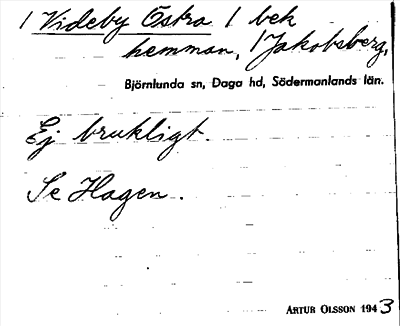 / Videby Östra / bek
hemman, / Jakobsberg,
Björnlunda sn, Daga hd, Södermanlands län.
Ej brukligt.
Se Hagen.
ARTUR OLSSON 1943